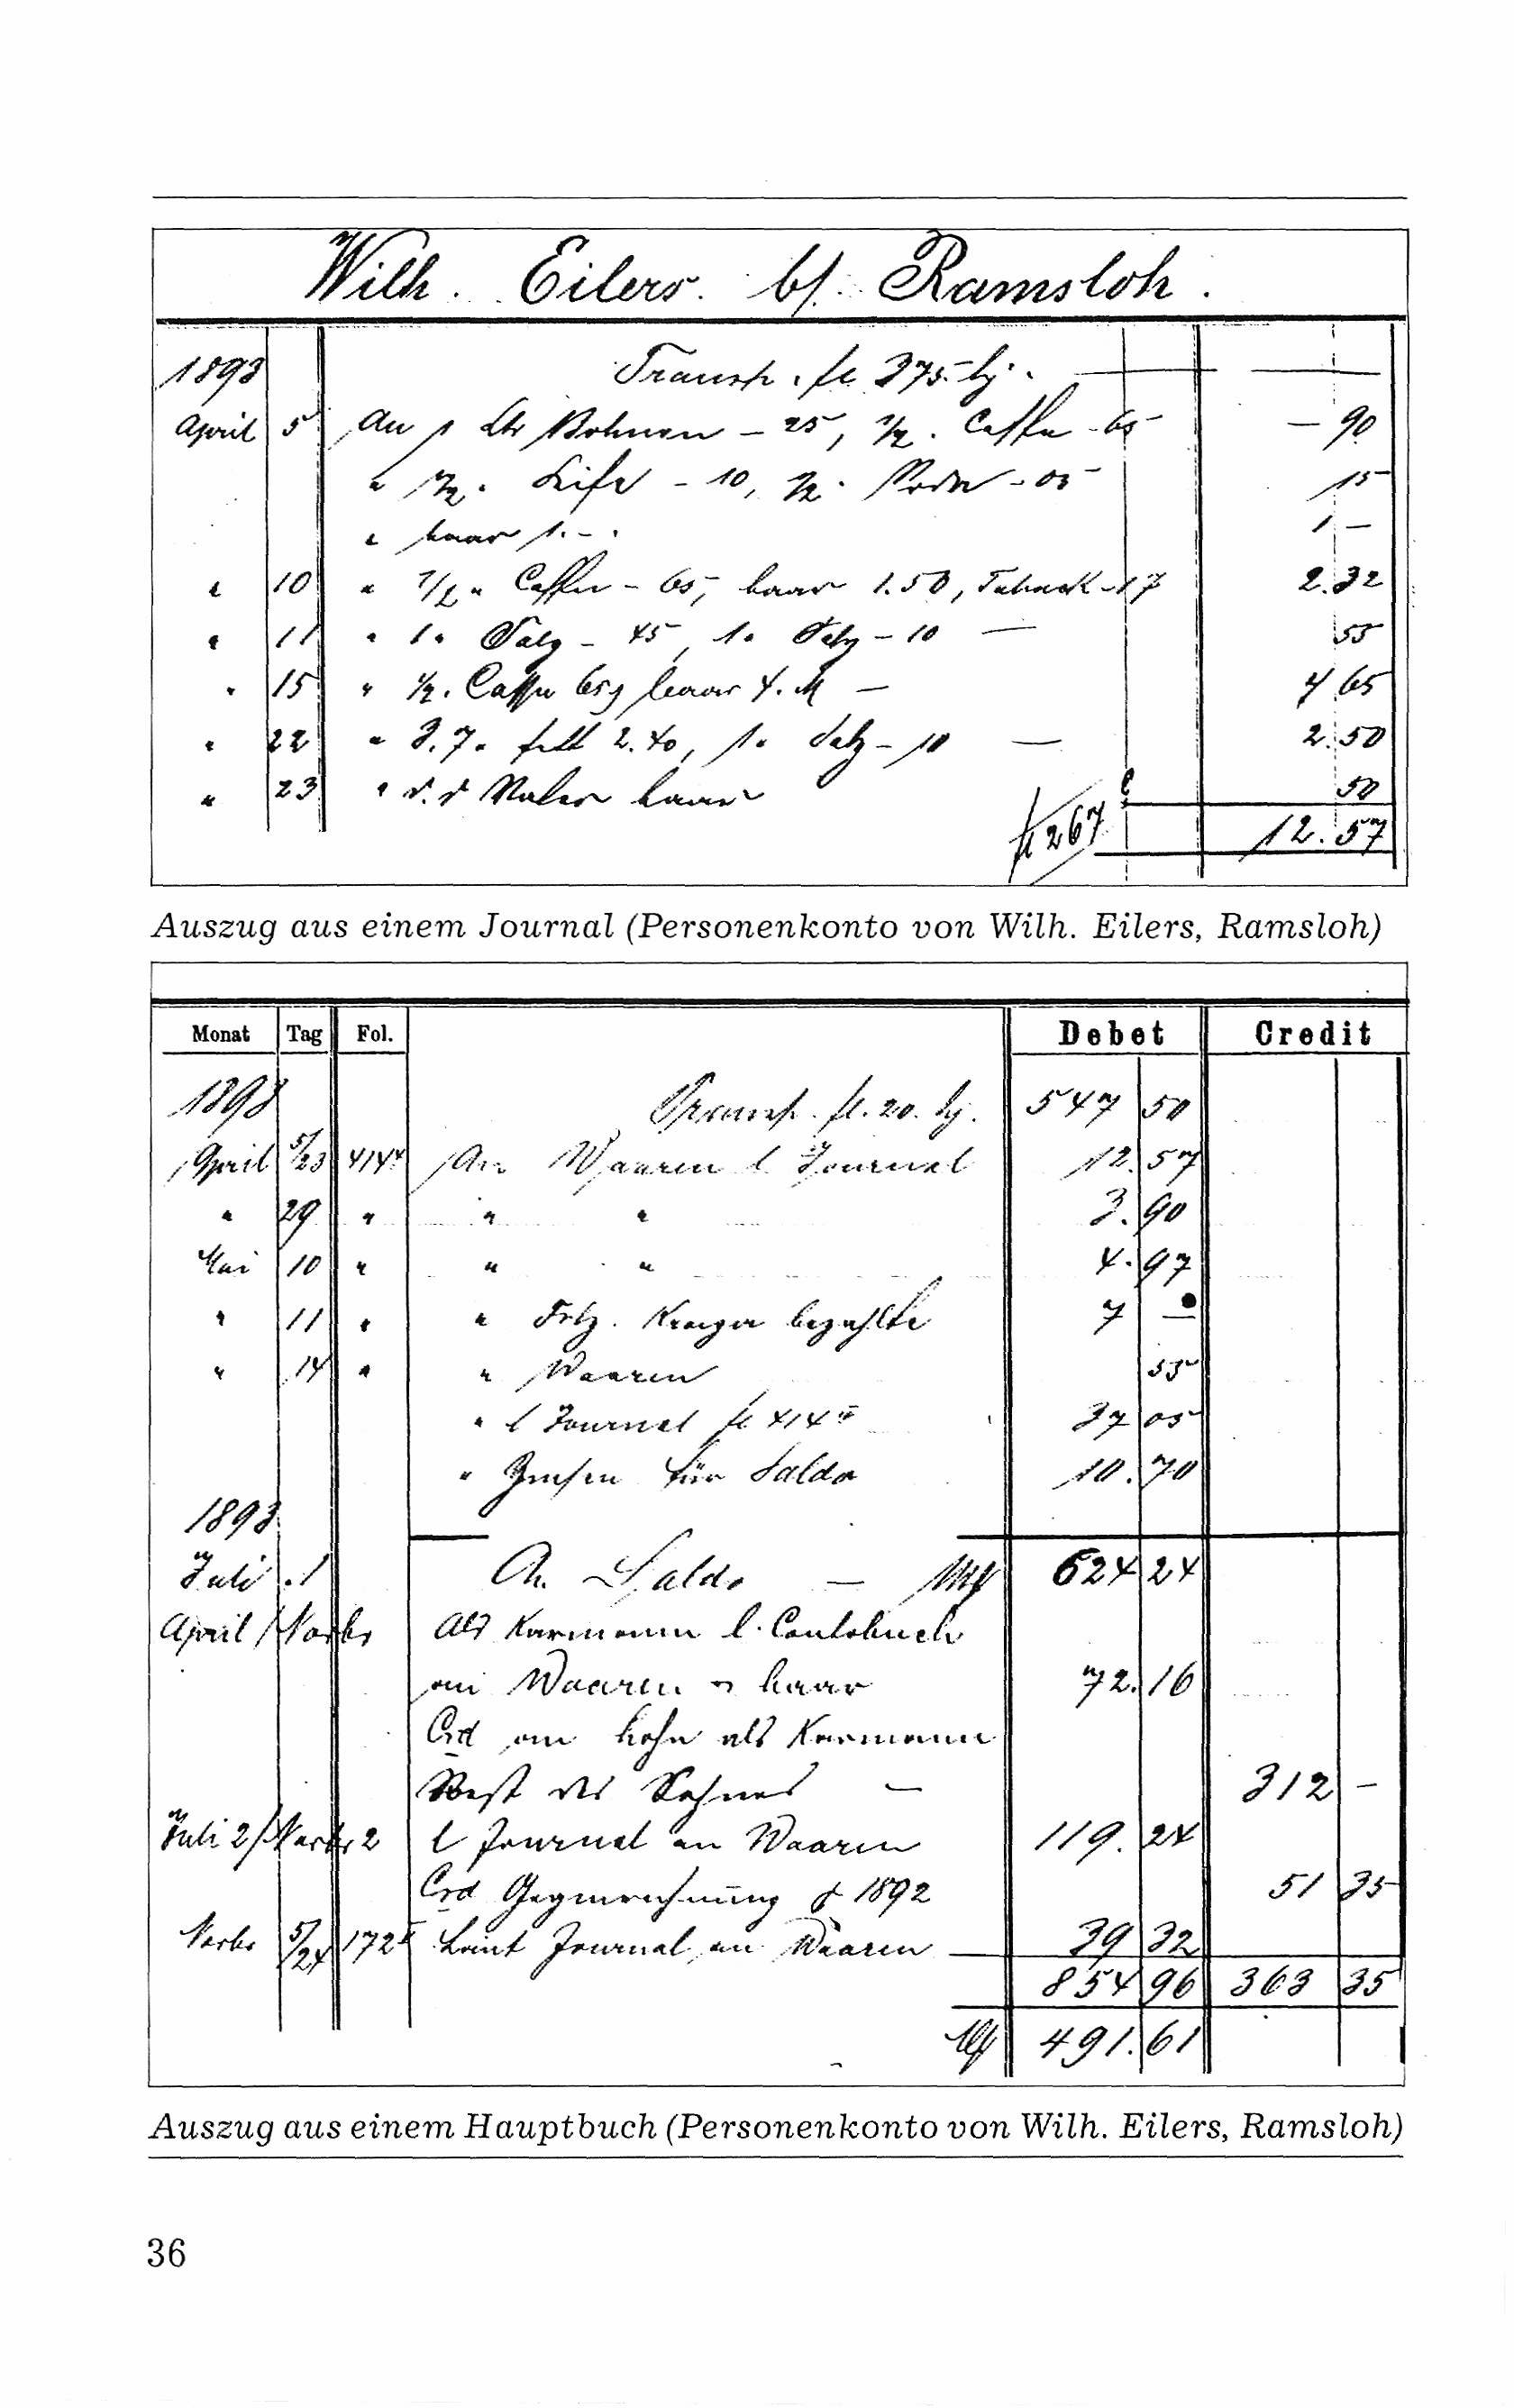 Wilh. Eilers. bf. Ramsloh.
1893 Transp. fl 375. hj.
April 5 An 1 Ltr Bohnen - 25, 1/2. Caffe - 65 - 90
" 1/2. Seife - 10, 1/2. Soda - 05 15
" baar 1.-. 1 -
" 10 " 1/2 " Caffe - 65, baar 1.50, Taback - 17 2.32
" 11 " 1 " Talg - 45, 1 " Salz - 10 — 55
" 15 " 1/2. Caffe 65, baar 4. M — 4 65
" 22 " 3.7 " fett 2.40, 1 " Salz - 10 — 2.50
" 23 " baar 50
fl 267 12.57
Auszug aus einem Journal (Personenkonto von Wilh. Eilers, Ramsloh)
Monat Tag Fol. Debet Credit
1893 Transp. fl. 20. hj. 547 50
April 5/23 414 An Waaren l Journal 12.57
" 29 " " " 3.90
Mai 10 " " " 4.97
" 11 " " bezahlte 7 —
" 14 " " Waaren 55
" l Journal fl 414 37 05
" Zinsen für Saldo 10.70
1893
Juli 1 An Saldo — Mk 624 24
April / Novbr Als l. Contobuch
an Waaren baar 72.16
Crd an Lohn als
Rest des Sohnes — 312 -
Juli 2/Novbr 2 l Journal an Waaren 119.24
Crd Gegenrechnung 1892 51 35
Novbr 5/24 172 Laut Journal an Waaren — 39 32
854 96 363 35
Mk 491.61
Auszug aus einem Hauptbuch (Personenkonto von Wilh. Eilers, Ramsloh)
36